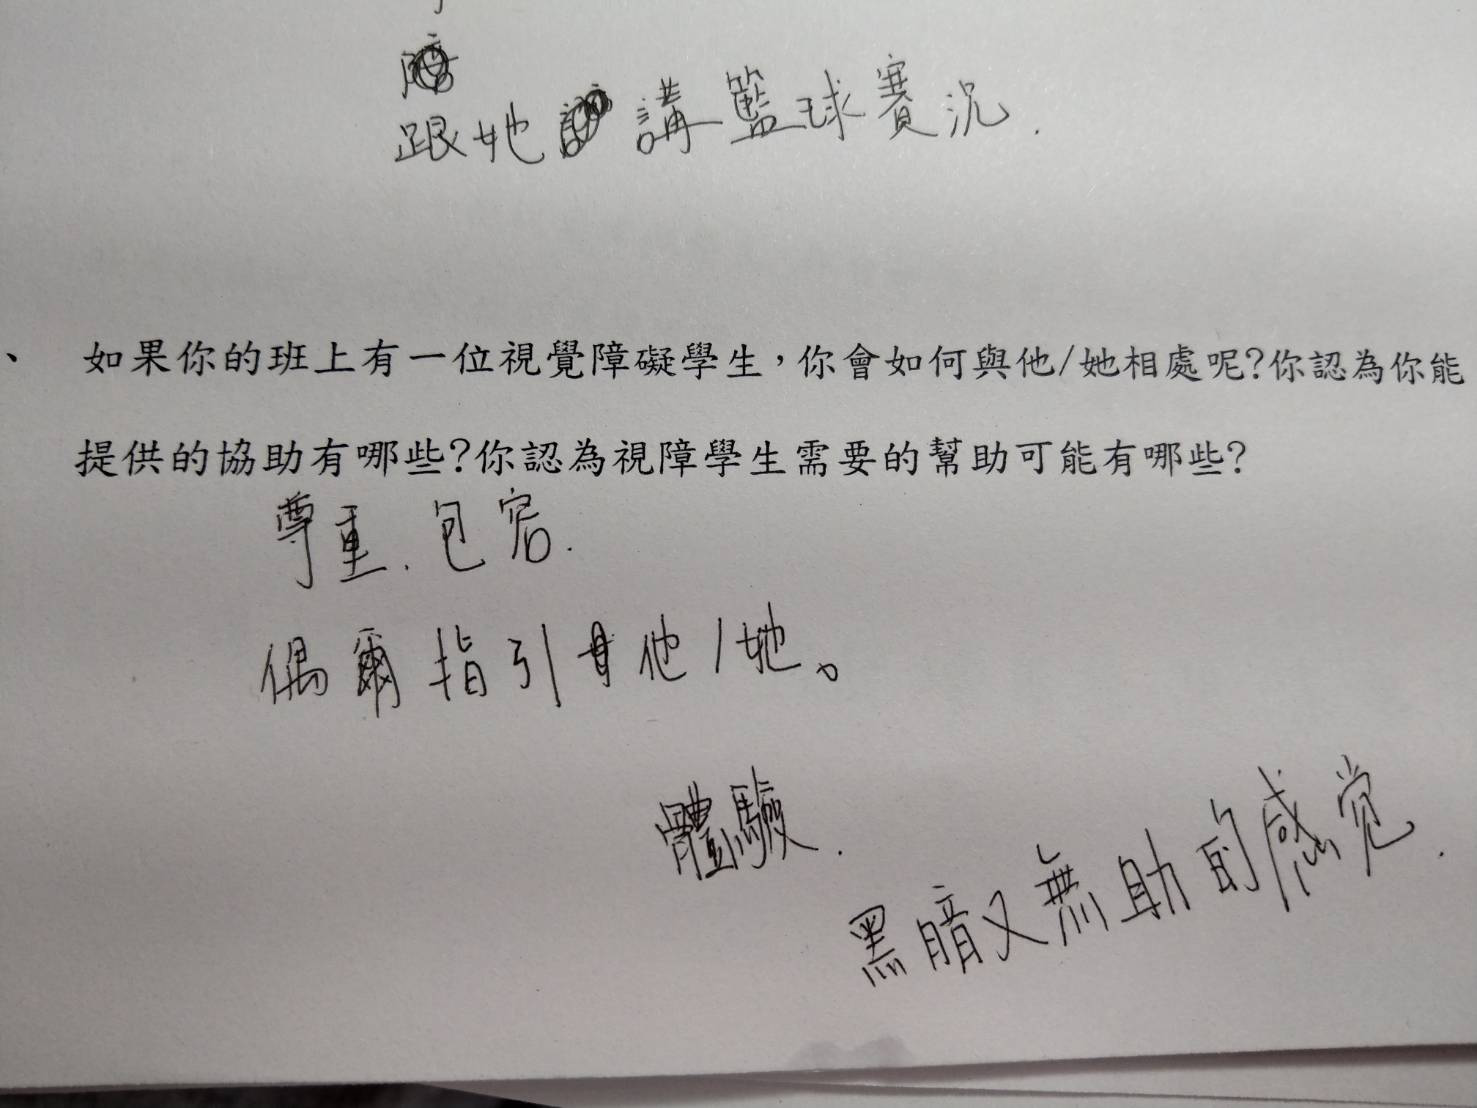 跟她講籃球賽況.
、 如果你的班上有一位視覺障礙學生，你會如何與他/她相處呢?你認為你能
提供的協助有哪些?你認為視障學生需要的幫助可能有哪些?
尊重.包容.
偶爾指引他/她。
體驗.
黑暗又無助的感觉.